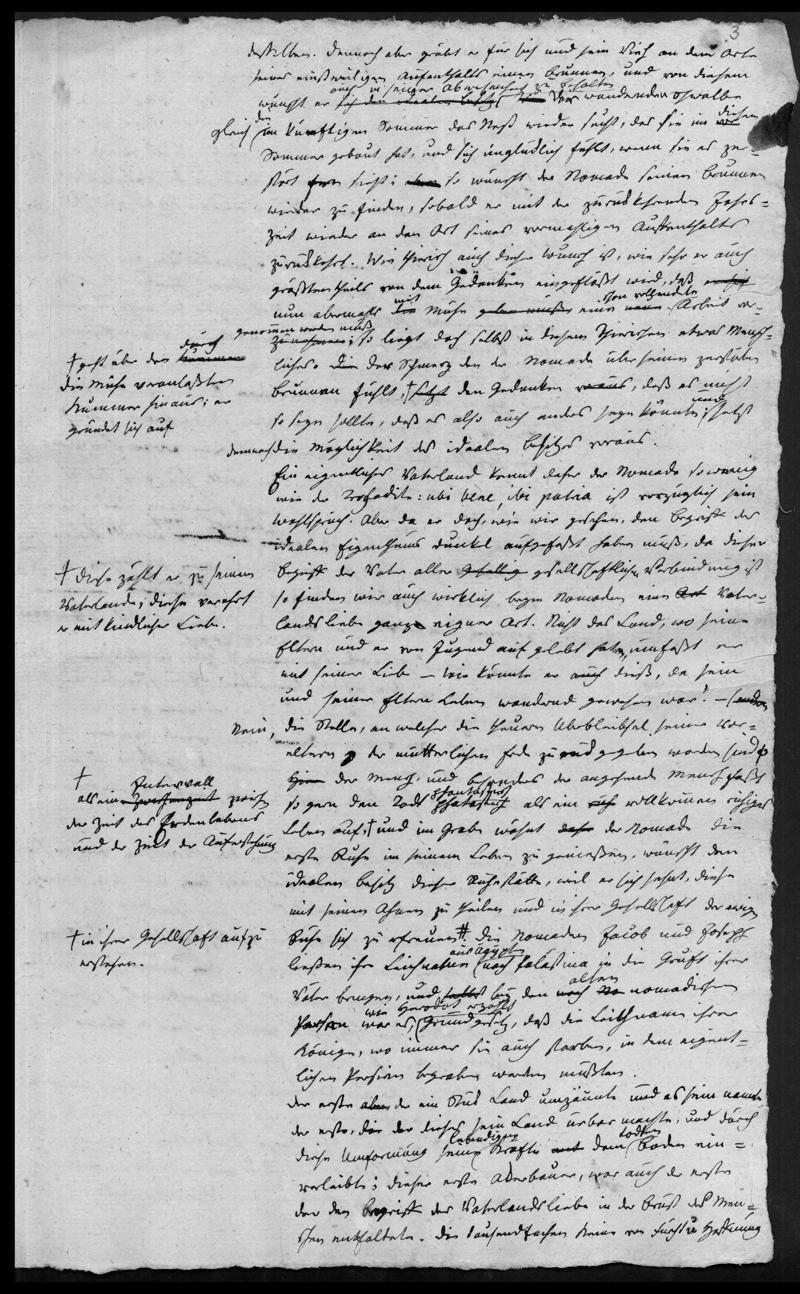 3
desselben. Dennoch aber gräbt er für sich und sein Vieh an dem Orte
seines einstweiligen Aufenthalts einen Brunnen, und von diesem
auch in seiner Abwesenheit zu behalten
wünscht er sich den idealen Besitz Der wandernden Schwalbe
gleich die im künftigen Sommer das Nest wieder sucht, das sie im diesem
Sommer gebaut hat, und sich unglücklich fühlt, wenn sie es zer-
stört sieht; so wünscht der Nomade seinen Brunnen
wieder zu finden, sobald er mit der zurückkehrenden Jahrs-
zeit wieder an den Ort seines vormahligen Aufenthalts
zurückkehrt. Wie thierisch auch dieser Wunsch ist, wie sehr er auch
größtentheils von dem Gedanken eingeflößt wird, daß
nun abermahls mit Mühe eine schon vollendete Arbeit vor-
genommen werden muß
so liegt doch selbst in diesem Thierischen etwas Mensch-
liches. Der Schmerz den der Nomade über seinen zerstörten
Brunnen fühlt, † setzt den Gedanken voraus, daß es nicht
so seyn sollte, daß es also auch anders seyn könnte; und setzt
demnach die Möglichkeit des idealen Besitzes voraus.
† geht über den durch
die Mühe veranlaßten
Kummer hinaus; er
gründet sich auf
Ein eigentliches Vaterland kennt daher der Nomade so wenig
wie der Troglodite: ubi bene, ibi patria ist vorzüglich sein
Wahlspruch. Aber da er doch, wie wir gesehen, den Begriff des
idealen Eigenthums dunkel aufgefaßt haben muß, da dieser
Begriff der Vater aller gesellschaftlichen Verbindung ist
so finden wir auch wirklich beym Nomaden eine Art Vater-
landsliebe ganz eigner Art. Nicht das Land, wo seine
Eltern und er von Jugend auf gelebt haben, umfaßt er
mit seiner Liebe – wie könnte er auch dieß, da sein
und seiner Eltern Leben wandernd gewesen war? –
Nein, die Stelle, an welcher die theuern Überbleibsel seiner Vor-
eltern der mütterlichen Erde zurückgegeben worden sind †
† Diese zählt er zu seinem
Vaterlande; diese verehrt
er mit kindlicher Liebe.
der Mensch und besonders der angehende Mensch faßt
so gern den Tod phantastisch als ein vollkommen ruhiges
Leben auf; † und im Grabe wähnt der Nomade die
erste Ruhe in seinem Leben zu genießen, wünscht den
idealen Besitz dieser Ruhestätte, weil er sich sehnt, diese
mit seinen Ahnen zu theilen und in ihrer Gesellschaft der ewigen
Ruhe sich zu erfreuen ‡. Die Nomaden Jacob und Joseph
† als ein Intervall zwischen
der Zeit des Erdenlebens
und der Zeit der Auferstehung
† in ihrer Gesellschaft aufzu
erstehen.
ließen ihre Leichnahme aus Ägypten nach Palästina in die Gruft ihrer
Väter bringen, und bey den alten nomadischen
Persern war es, wie Herodot erzählt Grundgesetz, daß die Leichname ihrer
Könige, wo immer sie auch starben, in dem eigent-
lichen Persien begraben werden mußten.
Der erste der ein Stück Land umzäunte und es sein nannte
der erste, der dieses sein Land urbar machte, und durch
diese Umformung seine lebendigen Kräfte dem todten Boden ein-
verleibte; dieser erste Ackerbauer, war auch der erste
der den Begriff der Vaterlandsliebe in der Brust des Men-
schen entfaltete. Die tausendfachen Keime von Furcht u Hoffnung